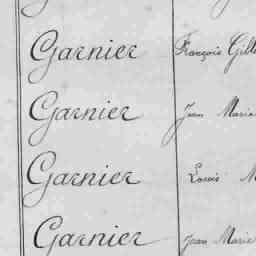 Garnier François
Garnier Jean Marie
Garnier Louis
Garnier Jean Marie